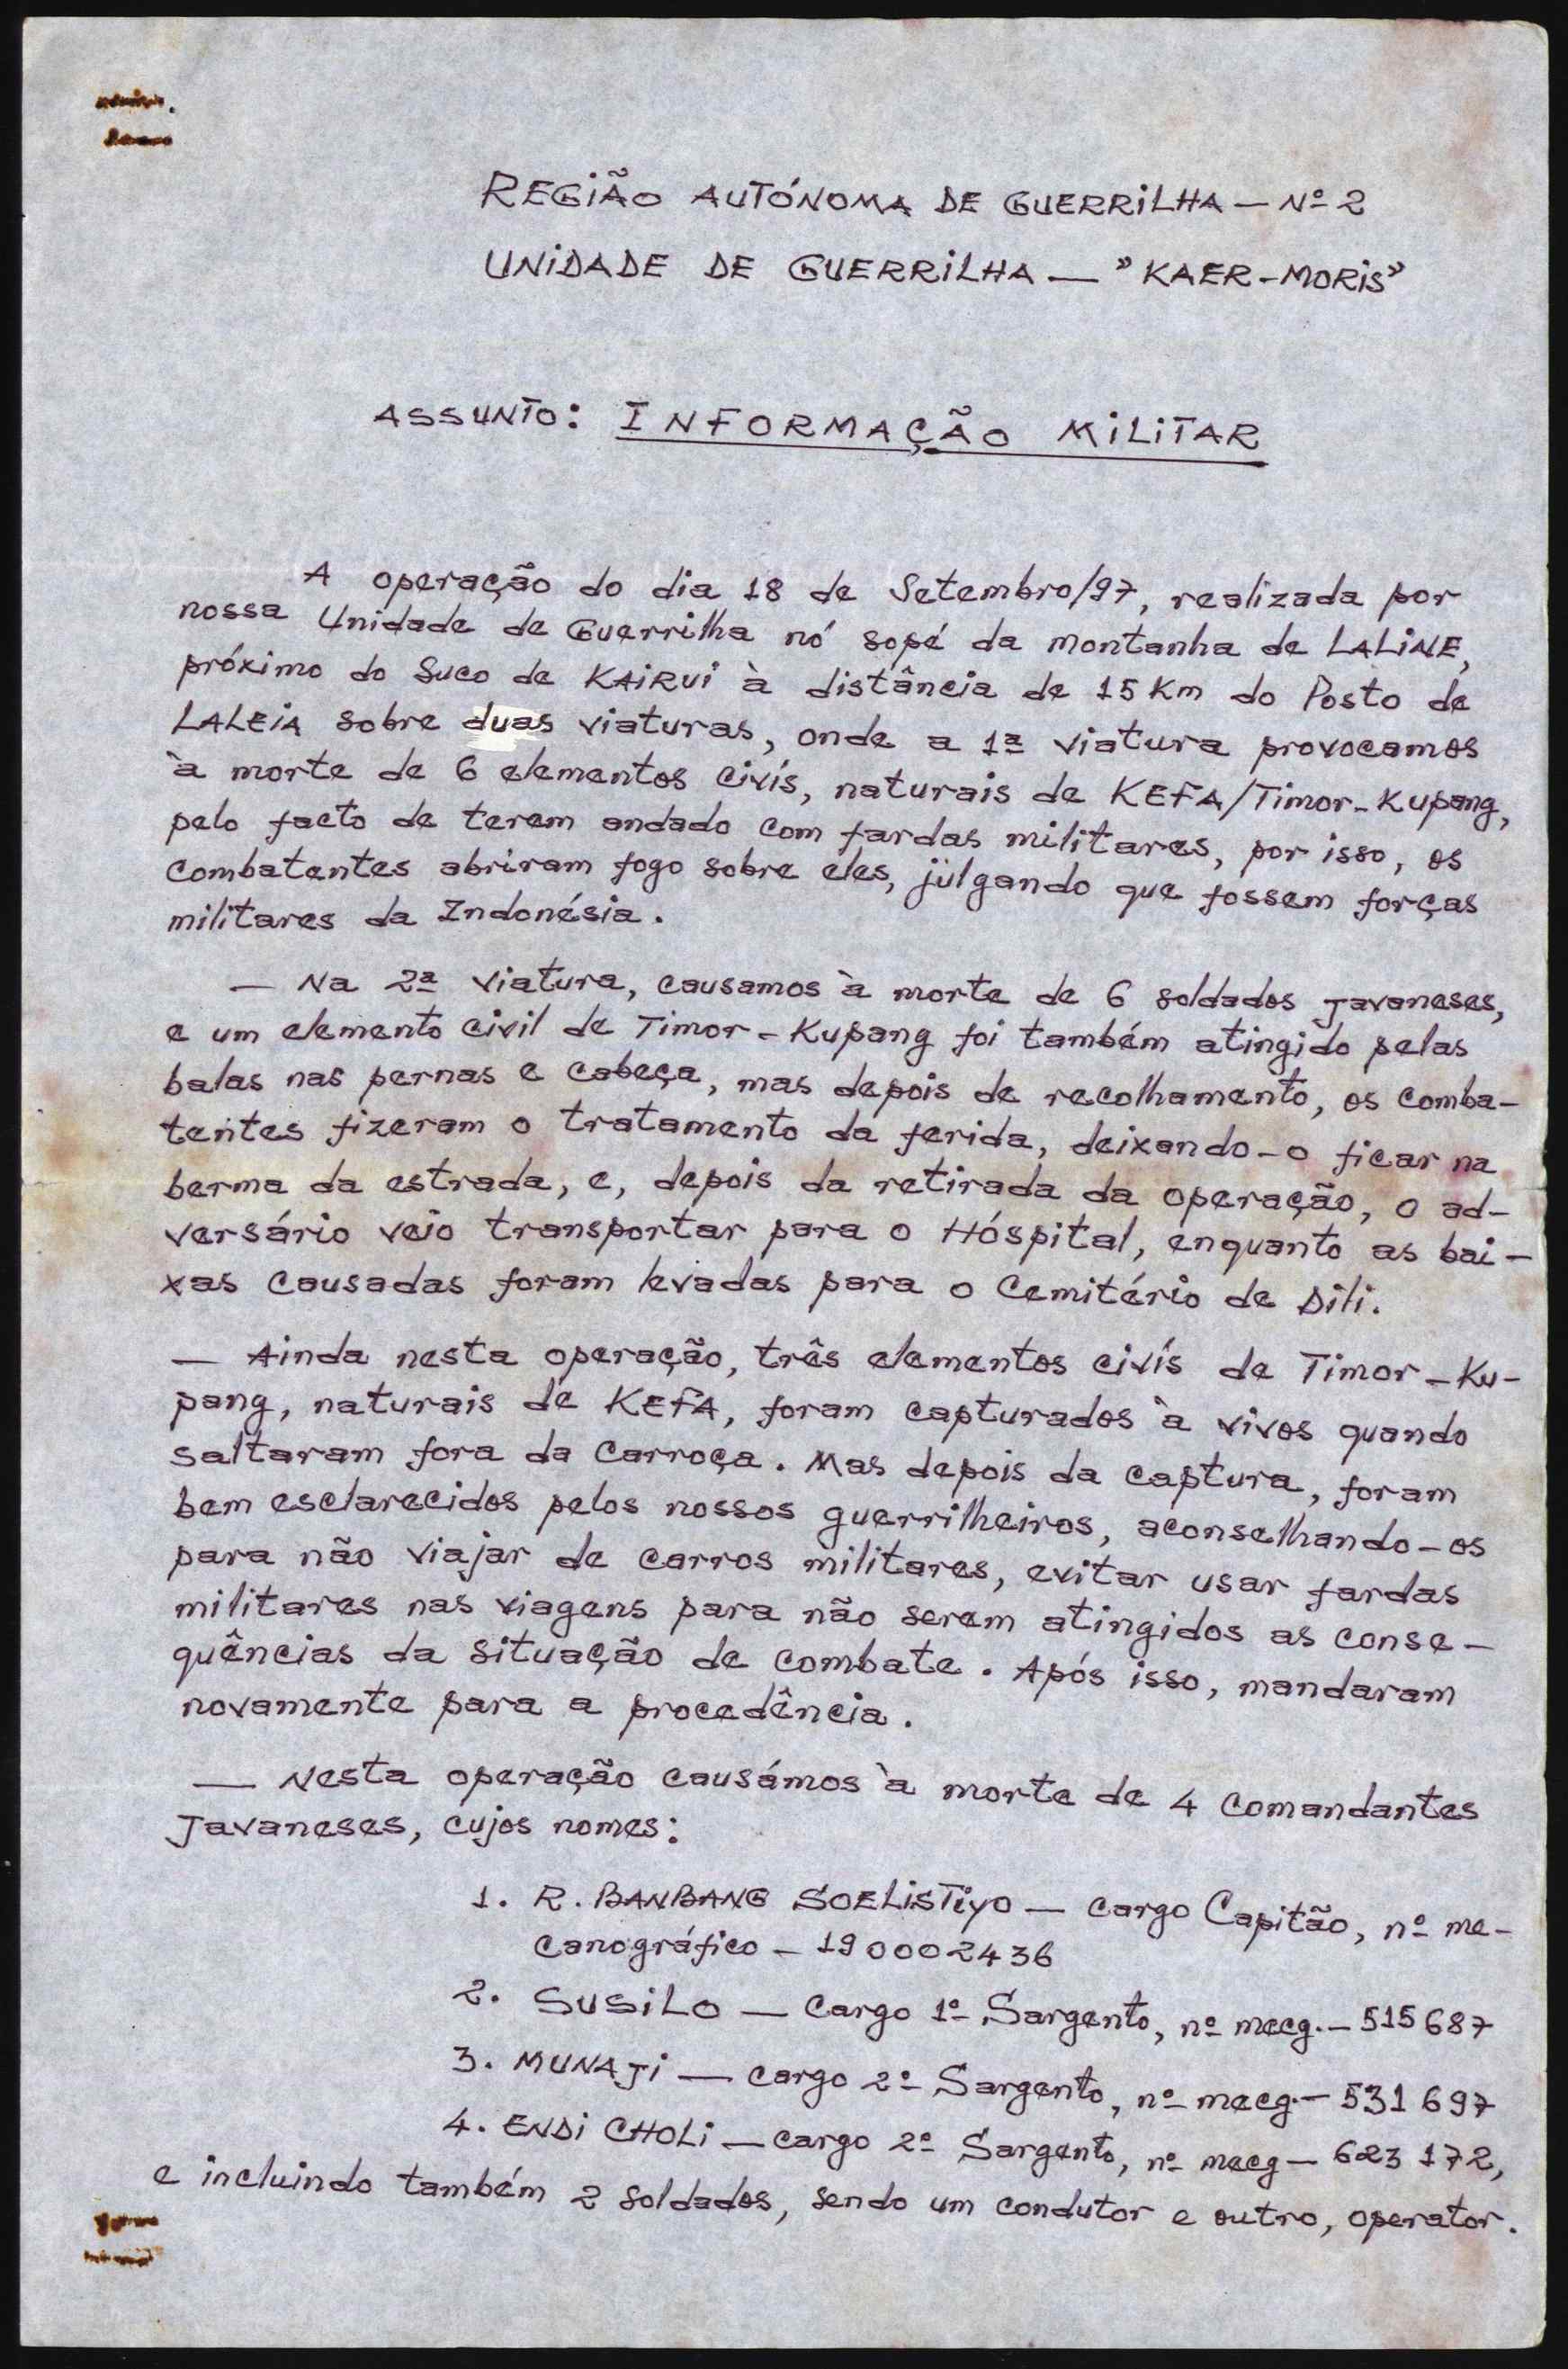 REGIÃO AUTÓNOMA DE GUERRILHA — Nº 2
UNIDADE DE GUERRILHA — "KAER-MORIS"
ASSUNTO: INFORMAÇÃO MILITAR
A operação do dia 18 de Setembro/97, realizada por
nossa Unidade de Guerrilha nó sopé da montanha de LALINE,
próximo do Suco de KAIRUI à distância de 15 Km do Posto de
LALEIA sobre duas viaturas, onde a 1ª viatura provocamos
à morte de 6 elementos civís, naturais de KEFA/Timor-Kupang,
pelo facto de terem andado com fardas militares, por isso, os
combatentes abriram fogo sobre eles, julgando que fossem forças
militares da Indonésia.
— Na 2ª viatura, causamos à morte de 6 soldados javaneses,
e um elemento civil de Timor-Kupang foi também atingido pelas
balas nas pernas e cabeça, mas depois de recolhamento, os comba-
tentes fizeram o tratamento da ferida, deixando-o ficar na
berma da estrada, e, depois da retirada da operação, o ad-
versário veio transportar para o Hóspital, enquanto as bai-
xas causadas foram levadas para o Cemitério de Dili.
— Ainda nesta operação, três elementos civís de Timor-Ku-
pang, naturais de KEFA, foram capturados à vivos quando
saltaram fora da carroça. Mas depois da captura, foram
bem esclarecidos pelos nossos guerrilheiros, aconselhando-os
para não viajar de carros militares, evitar usar fardas
militares nas viagens para não serem atingidos as conse-
quências da situação de combate. Após isso, mandaram
novamente para a procedência.
— Nesta operação causámos à morte de 4 comandantes
Javaneses, cujos nomes:
1. R. BANBANG SOELISTIYO — cargo Capitão, nº me-
canográfico — 190002436
2. SUSILO — cargo 1º Sargento, nº mecg. — 515687
3. MUNAJI — cargo 2º Sargento, nº mecg. — 531697
4. ENDI CHOLI — cargo 2º Sargento, nº mecg — 623172,
e incluindo também 2 soldados, sendo um condutor e outro, operator.